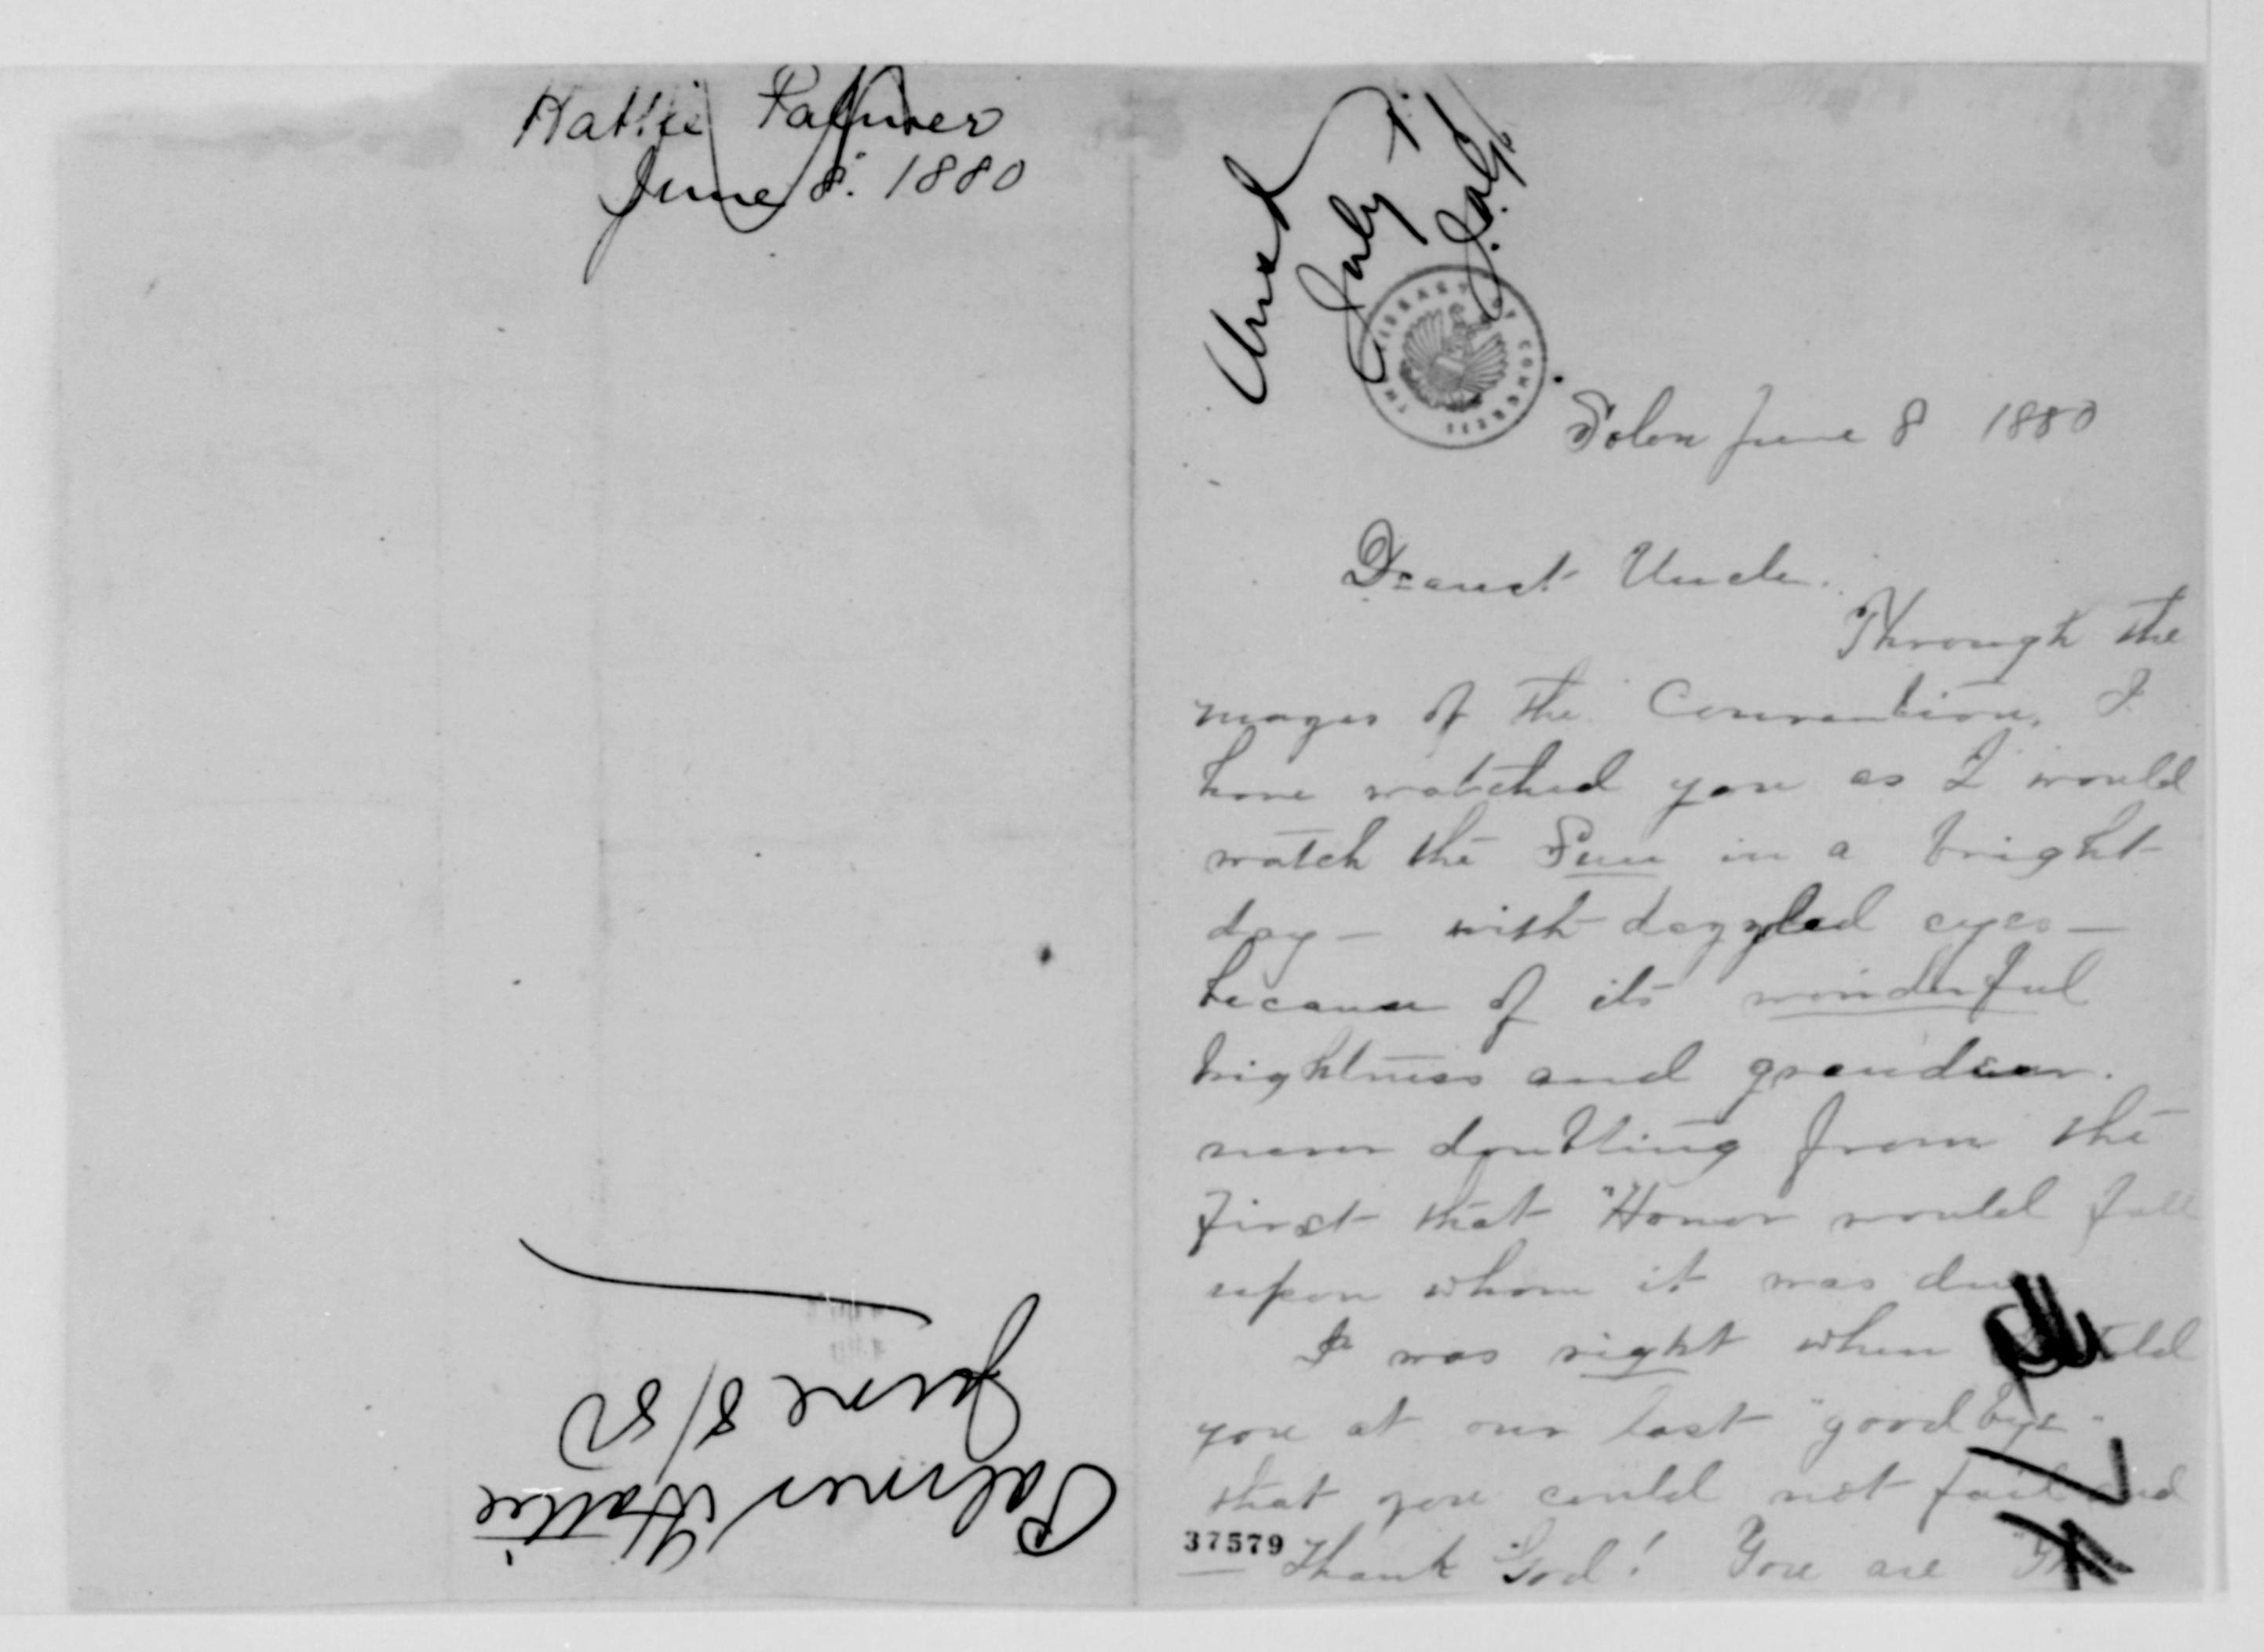 Hattie Palmer
June 8. 1880
Palmer Hattie
June 8/80
July 7.
THE LIBRARY OF CONGRESS
Solon June 8 1880
Dearest Uncle.
Through the
mazes of the Convention, I
have watched you as I would
watch the Sun in a bright
day — with dazzled eyes —
because of its wonderful
brightness and grandeur.
never doubting from the
first that "Honor would fall
upon whom it was due
I was right when told
you at our last "goodbye"
that you could not fail and
37579
Thank God! You are